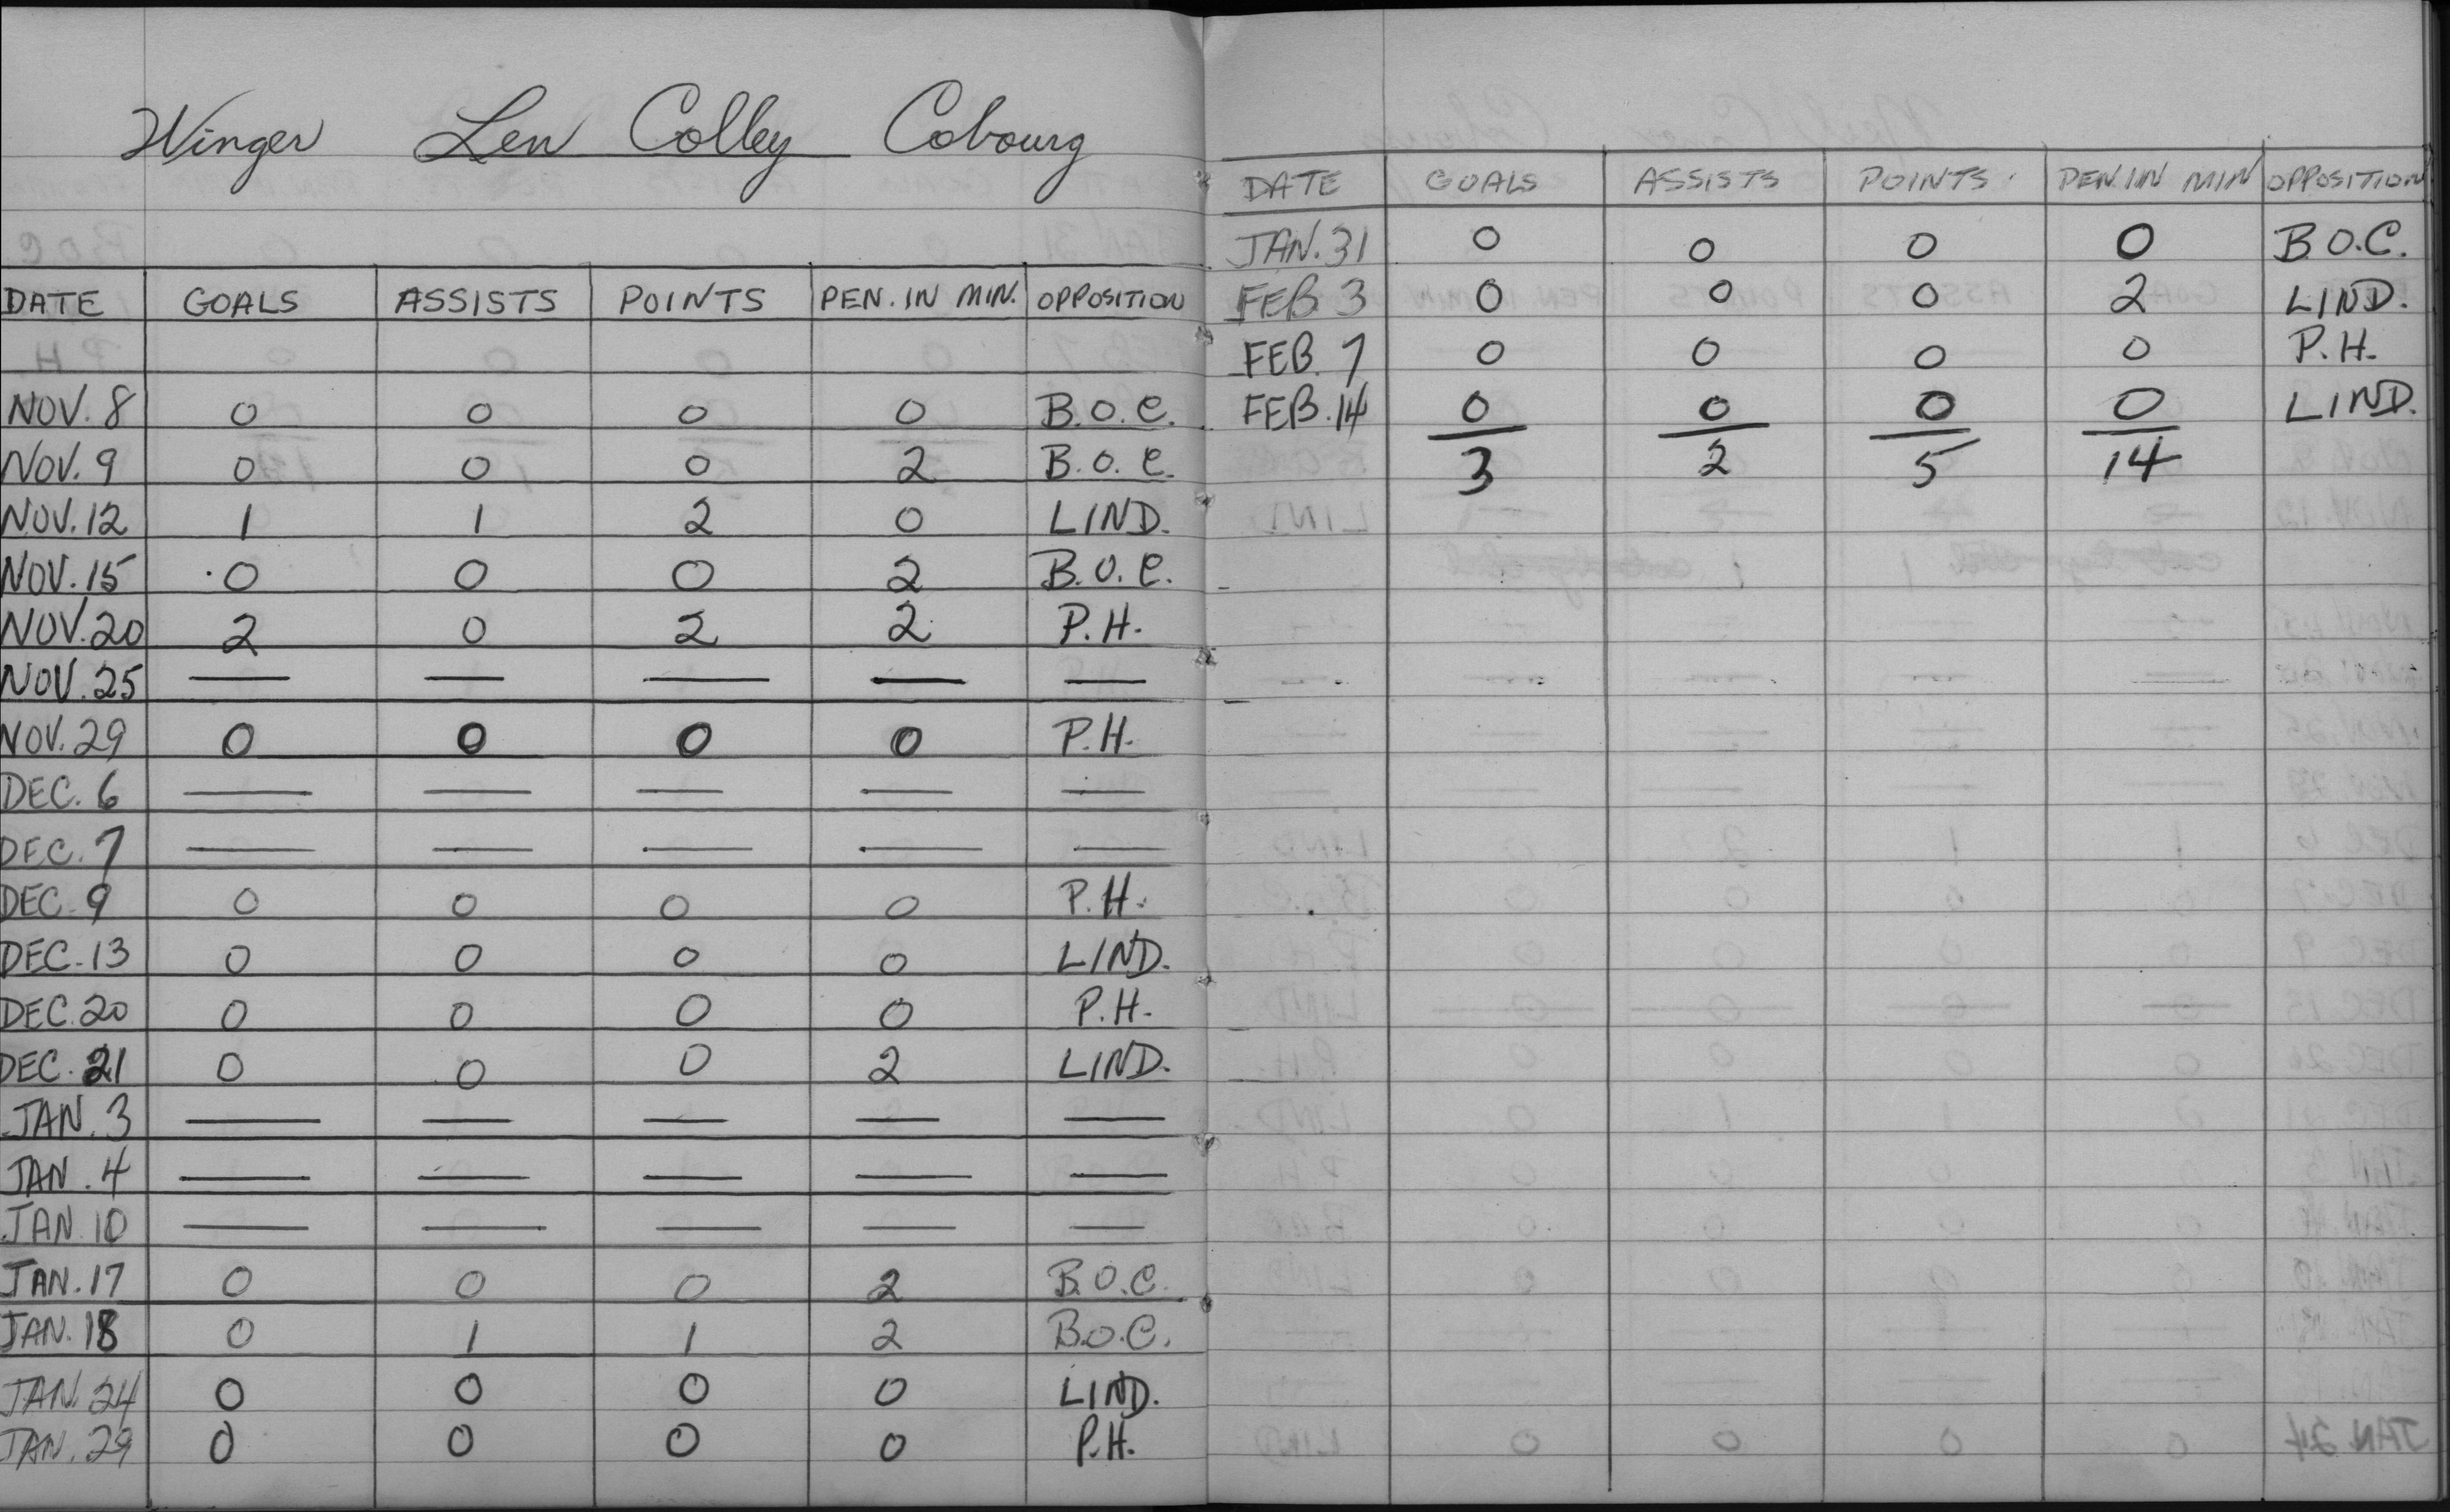 Winger Len Colley Cobourg
DATE GOALS ASSISTS POINTS PEN. IN MIN. OPPOSITION
NOV. 8 0 0 0 0 B.O.C.
NOV. 9 0 0 0 2 B.O.C.
NOV. 12 1 1 2 0 LIND.
NOV. 15 0 0 0 2 B.O.C.
NOV. 20 2 0 2 2 P.H.
NOV. 25 — — — — —
NOV. 29 0 0 0 0 P.H.
DEC. 6 — — — — —
DEC. 7 — — — — —
DEC. 9 0 0 0 0 P.H.
DEC. 13 0 0 0 0 LIND.
DEC. 20 0 0 0 0 P.H.
DEC. 21 0 0 0 2 LIND.
JAN. 3 — — — — —
JAN. 4 — — — — —
JAN. 10 — — — — —
JAN. 17 0 0 0 2 B.O.C.
JAN. 18 0 1 1 2 B.O.C.
JAN. 24 0 0 0 0 LIND.
JAN. 29 0 0 0 0 P.H.
DATE GOALS ASSISTS POINTS PEN. IN MIN OPPOSITION
JAN. 31 0 0 0 0 B.O.C.
FEB. 3 0 0 0 2 LIND.
FEB. 7 0 0 0 0 P.H.
FEB. 14 0 0 0 0 LIND.
3 2 5 14